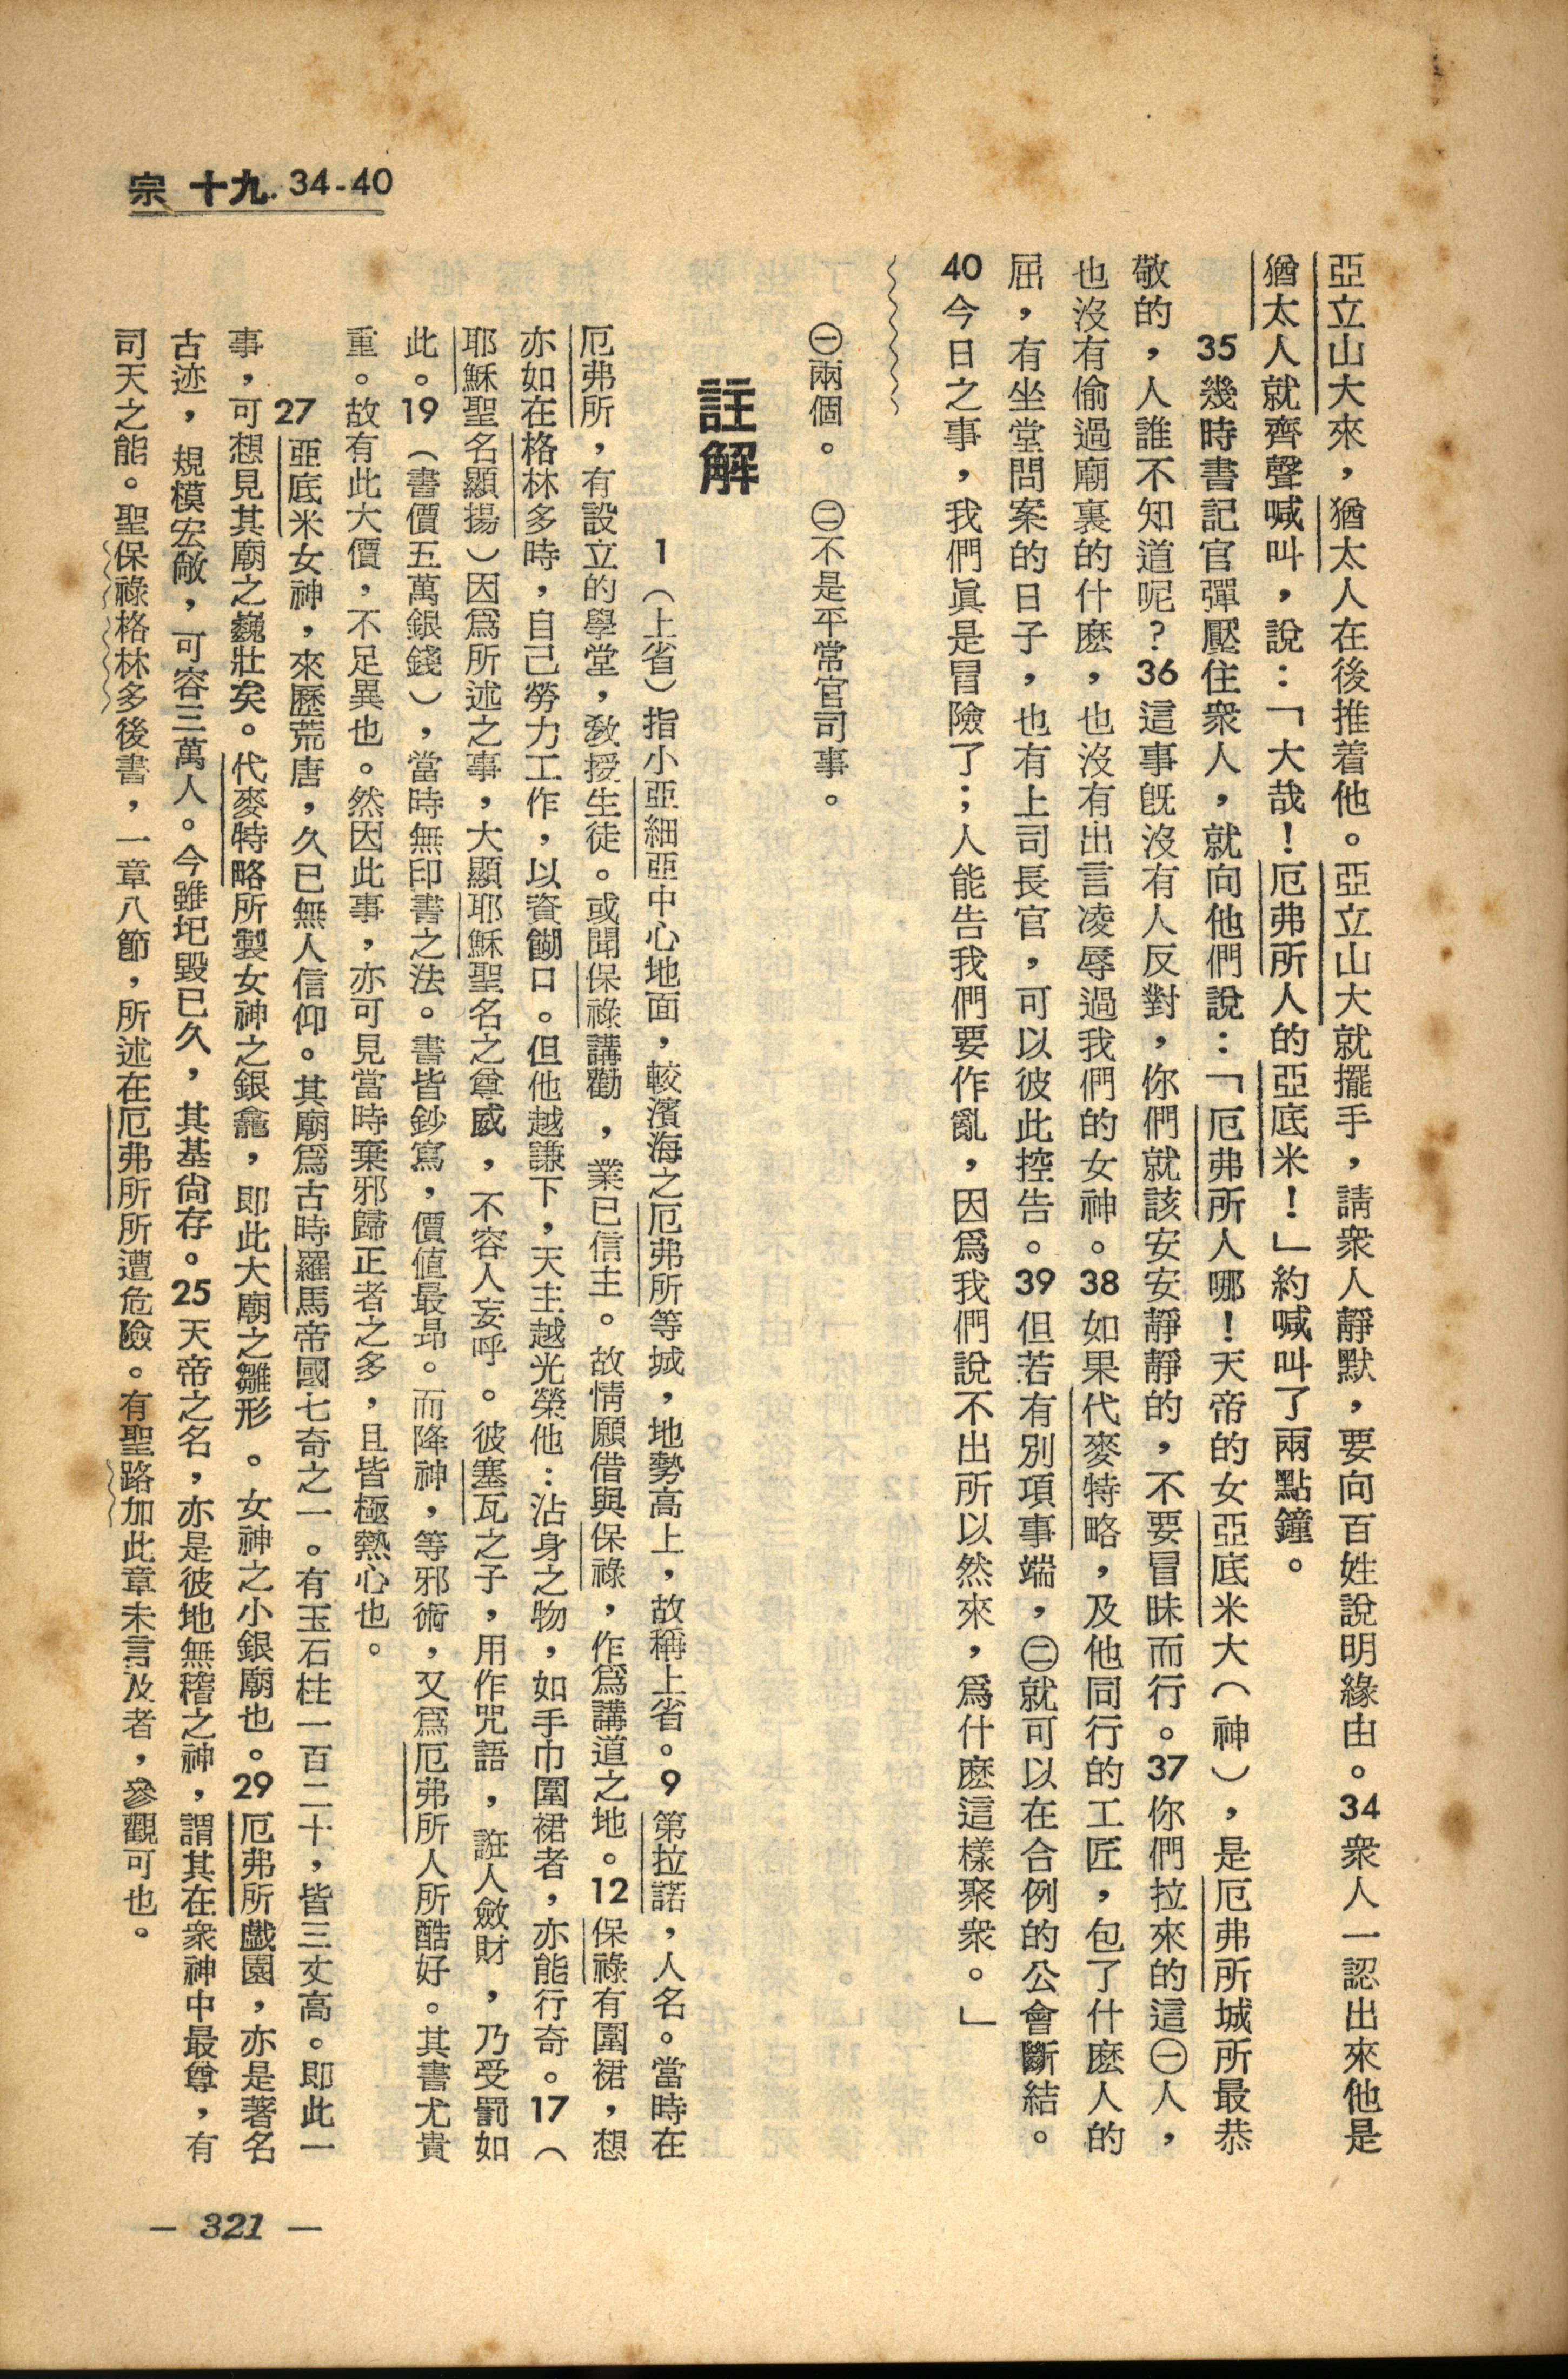 宗 十九. 34-40
亞立山大來，猶太人在後推着他。亞立山大就擺手，請衆人靜默，要向百姓說明緣由。34衆人一認出來他是
猶太人就齊聲喊叫，說：「大哉！厄弗所人的亞底米！」約喊叫了兩點鐘。
35幾時書記官彈壓住衆人，就向他們說：「厄弗所人哪！天帝的女亞底米大（神），是厄弗所城所最恭
敬的，人誰不知道呢？36這事旣沒有人反對，你們就該安安靜靜的，不要冒昧而行。37你們拉來的這㊀人，
也沒有偷過廟裏的什麽，也沒有出言凌辱過我們的女神。38如果代麥特略，及他同行的工匠，包了什麽人的
屈，有坐堂問案的日子，也有上司長官，可以彼此控告。39但若有別項事端，㊁就可以在合例的公會斷結。
40今日之事，我們眞是冒險了；人能告我們要作亂，因爲我們說不出所以然來，爲什麽這樣聚衆。」
㊀兩個。 ㊁不是平常官司事。
註解
1（上省）指小亞細亞中心地面，較濱海之厄弗所等城，地勢高上，故稱上省。9第拉諾，人名。當時在
厄弗所，有設立的學堂，敎授生徒。或聞保祿講勸，業已信主。故情願借與保祿，作爲講道之地。12保祿有圍裙，想
亦如在格林多時，自己勞力工作，以資餬口。但他越謙下，天主越光榮他：沾身之物，如手巾圍裙者，亦能行奇。17（
耶穌聖名顯揚）因爲所述之事，大顯耶穌聖名之尊威，不容人妄呼。彼塞瓦之子，用作咒語，誑人斂財，乃受罰如
此。19（書價五萬銀錢），當時無印書之法。書皆鈔寫，價值最昂。而降神，等邪術，又爲厄弗所人所酷好。其書尤貴
重。故有此大價，不足異也。然因此事，亦可見當時棄邪歸正者之多，且皆極熱心也。
27亞底米女神，來歷荒唐，久已無人信仰。其廟爲古時羅馬帝國七奇之一。有玉石柱一百二十，皆三丈高。即此一
事，可想見其廟之巍壯矣。代麥特略所製女神之銀龕，即此大廟之雛形。女神之小銀廟也。29厄弗所戲園，亦是著名
古迹，規模宏敞，可容三萬人。今雖圮毀已久，其基尙存。25天帝之名，亦是彼地無稽之神，謂其在衆神中最尊，有
司天之能。聖保祿格林多後書，一章八節，所述在厄弗所所遭危險。有聖路加此章未言及者，參觀可也。
— 321 —